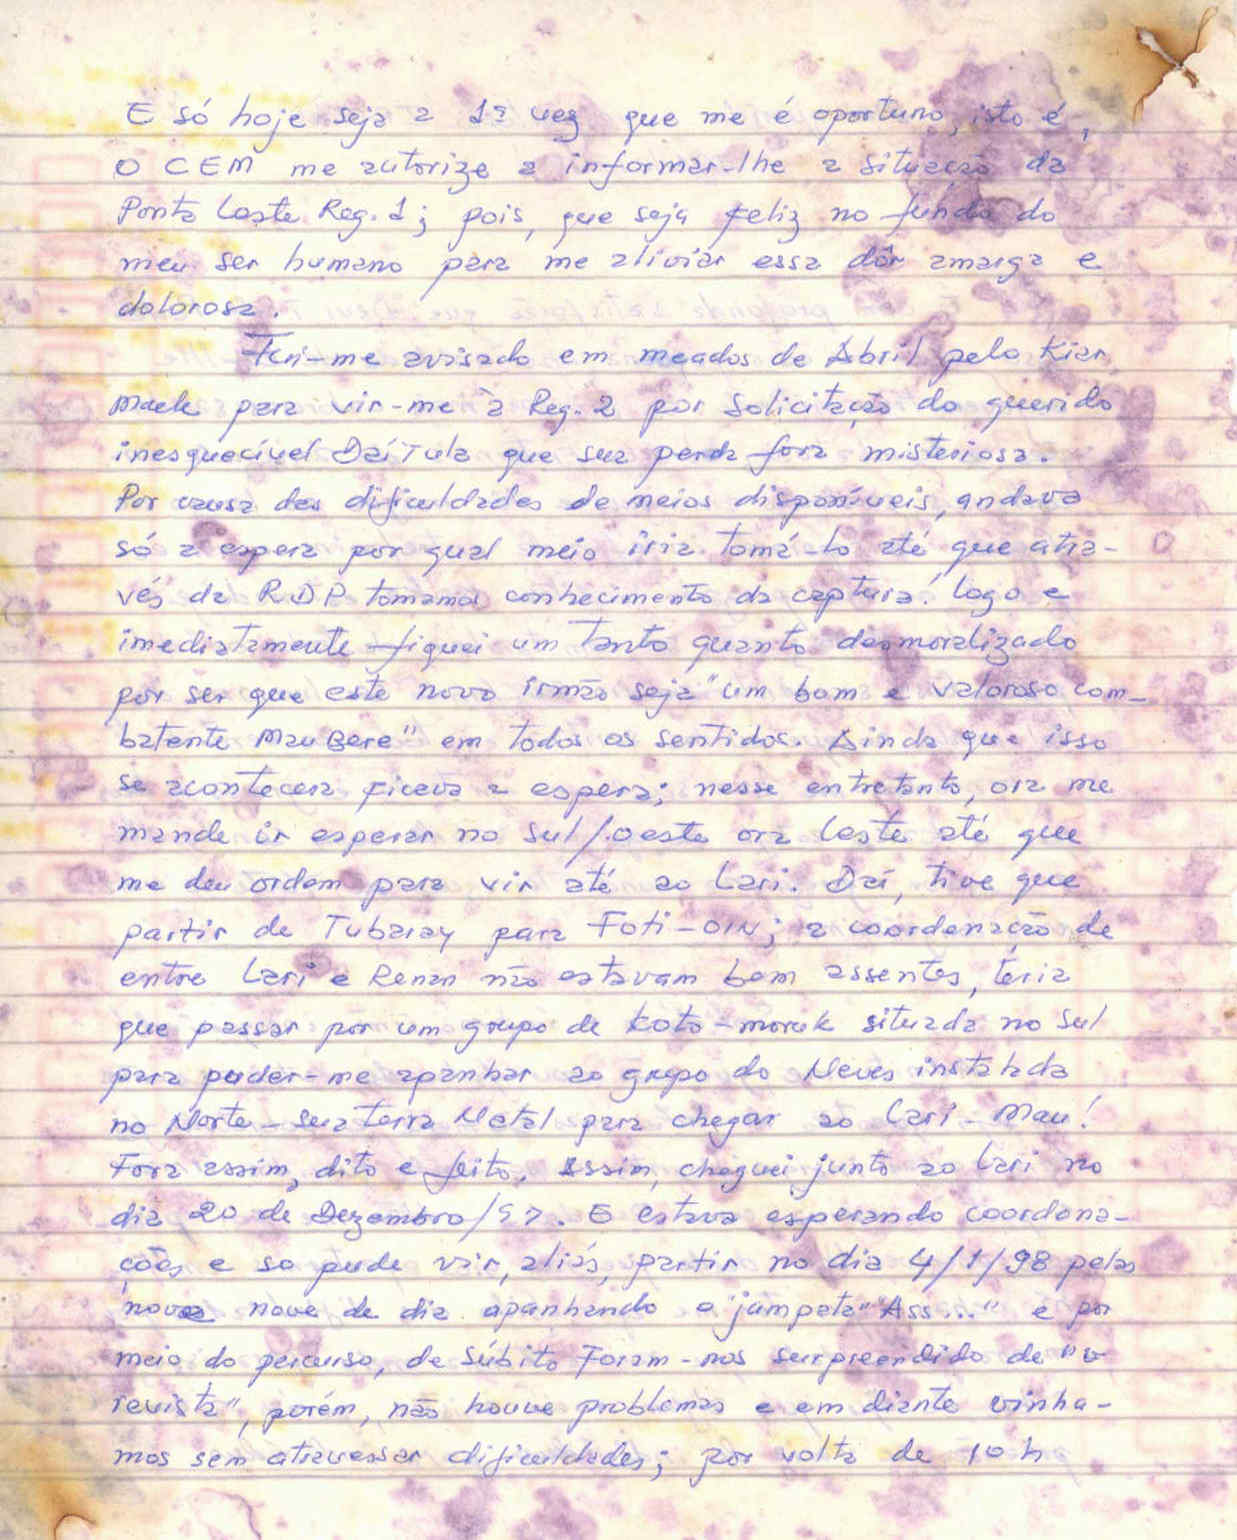 E só hoje seja a 1ª vez que me é oportuno, isto é,
O CEM me autorize a informar-lhe a situação da
Ponta Leste Reg. 1; pois, que seja feliz no fundo do
meu ser humano para me aliviar essa dôr amarga e
dolorosa.
Fui-me avisado em meados de Abril pelo Kiar
Maek para vir-me à Reg. 2 por solicitação do querido
inesquecível Daitula que sua perda fora misteriosa.
Por causa das dificuldades de meios disponíveis, andava
só a espera por qual meio iria tomá-lo até que atra-
vés da RDP tomamos conhecimento da captura! Logo e
imediatamente fiquei um tanto quanto desmoralizado
por ser que este novo irmão seja "um bom e valoroso com-
batente MauBere" em todos os sentidos. Ainda que isso
se acontecera ficava a espera; nesse entretanto, ora me
mande ir esperar no Sul/Oeste ora Leste até que
me deu ordem para vir até ao Lari. Daí, tive que
partir de Tubaray para Foti-OIN; a coordenação de
entre Lari e Renan não estavam bem assentes, teria
que passar por um grupo de Koto-moruk situada no Sul
para puder-me apanhar ao grupo do Neves instalada
no Norte - sua terra Natal para chegar ao Lari-Mau!
Fora assim, dito e feito. Assim, cheguei junto ao Lari no
dia 20 de Dezembro/97. E estava esperando coordena-
ções e so pude vir, aliás, partir no dia 4/1/98 pelas
nove de dia apanhando o "jampata" "Ass..." e por
meio do percurso, de súbito Foram-nos surpreendido de "v
revista", porém, não houve problemas e em diante vinha-
mos sem atravessar dificuldades; por volta de 10 h